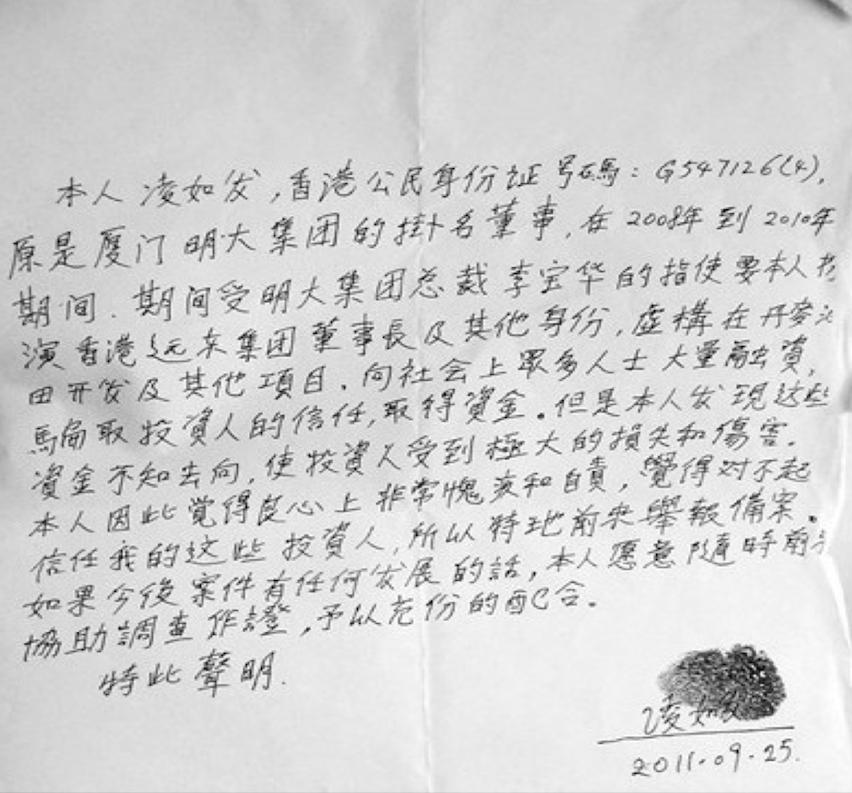 本人凌如发,香港公民身份证号碼:G547126(4),
原是厦门明大集团的掛名董事,在2008年到2010年
期间.期间受明大集团总裁李宝华的指使要本人扮
演香港远东集团董事長及其他身份,虚構在开
田开发及其他項目.向社会上眾多人士大量融資,
騙取投資人的信任,取得資金。但是本人发現这些
資金不知去向,使投資人受到極大的損失和傷害.
本人因此觉得良心上非常愧疚和自責,覺得对不起
信任我的这些投資人,所以特地前來舉報備案。
如果今後案件有任何发展的話,本人愿意隨時前
協助調查作證,予以充份的配合。
特此聲明.
凌如发
2011.09.25.